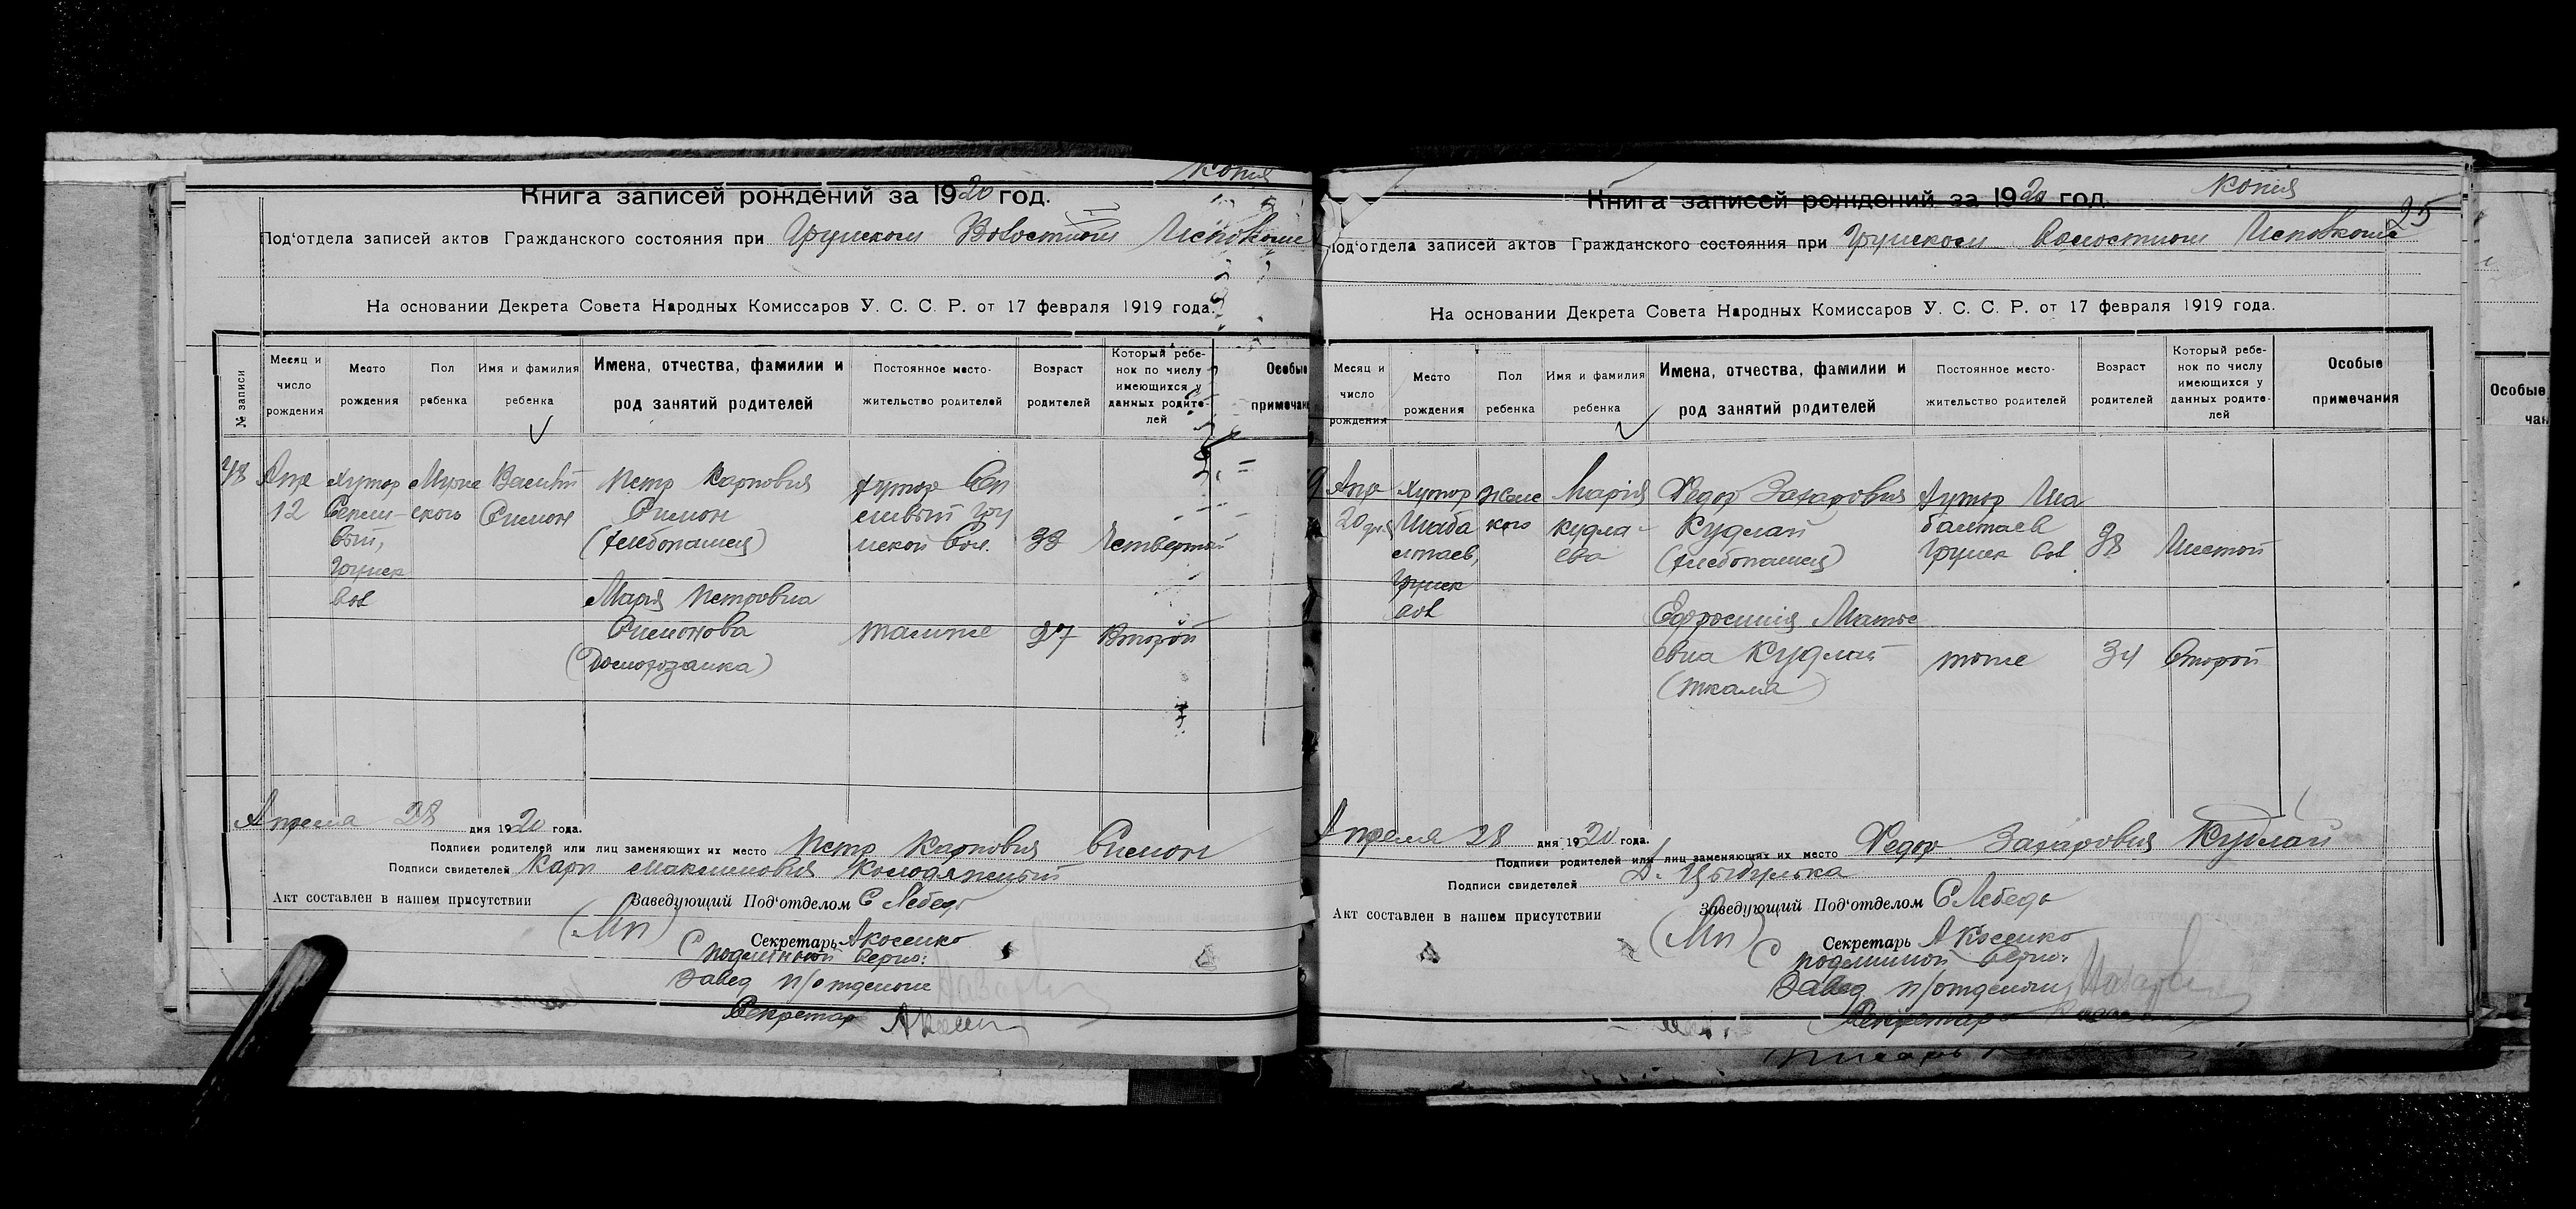 Копия
Книга записей рождений за 1920 год.
Под'отдела записей актов Гражданского состояния при Грунском Волостном Исполкоме
На основании Декрета Совета Народных Комиссаров У. С. С. Р. от 17 февраля 1919 года.
№ записи
Месяц и число рождения
Место рождения
Пол ребенка
Имя и фамилия ребенка
Имена, отчества, фамилии и род занятий родителей
Постоянное место-жительство родителей
Возраст родителей
Который ребе-нок по числу имеющихся у данных родите-лей
Особые примечан
48
Апр
12
Хутор
вый,
Грунск
вол
Муже
ского
Василий
Симон
Петр Карпович
Симон
(хлебопашец)
хутор
ской вол.
33
Четвертый
Мария Петровна
Симонова
(Домохозайка)
тамже
27
Второй
Апреля 28 дня 1920 года.
Подписи родителей или лиц заменяющих их место Петр Карпович Симон
Подписи свидетелей Карп Максимович Колодяжный
Акт составлен в нашем присутствии
Заведующий Под'отделом С Лебедь
(Мп)
Секретарь А Косенко
С подлинной верно:
Завед п/отделом
Секретар
Копия
25
Книга записей рождений за 1920 год.
Под'отдела записей актов Гражданского состояния при Грунском Волостном Исполкоме
На основании Декрета Совета Народных Комиссаров У. С. С. Р. от 17 февраля 1919 года.
Месяц и число рождения
Место рождения
Пол ребенка
Имя и фамилия ребенка
Имена, отчества, фамилии и род занятий родителей
Постоянное место-жительство родителей
Возраст родителей
Который ребе-нок по числу имеющихся у данных родите-лей
Особые примечания
9
Апр
20 дня
Хутор
Шаба
лтаев,
Грунск
вол
женс
кого
Марія
Кудла-
ева
Федор Захарович
Кудлай
(хлебопашец)
Хутор Ша
балтаев
Грунск вол
38
Шестой
Ефросинія Матве
евна Кудлай
(ткаха)
тоже
34
Второй
Апреля 28 дня 1920 года.
Подписи родителей или лиц заменяющих их место Федор Захарович Кудлай
Подписи свидетелей Д. Цыбулька
Акт составлен в нашем присутствии
Заведующий Под'отделом С Лебедь
(Мп)
Секретарь А Косенко
С подлинной верно:
Завед п/отделом
Секретарь
Особые
чан